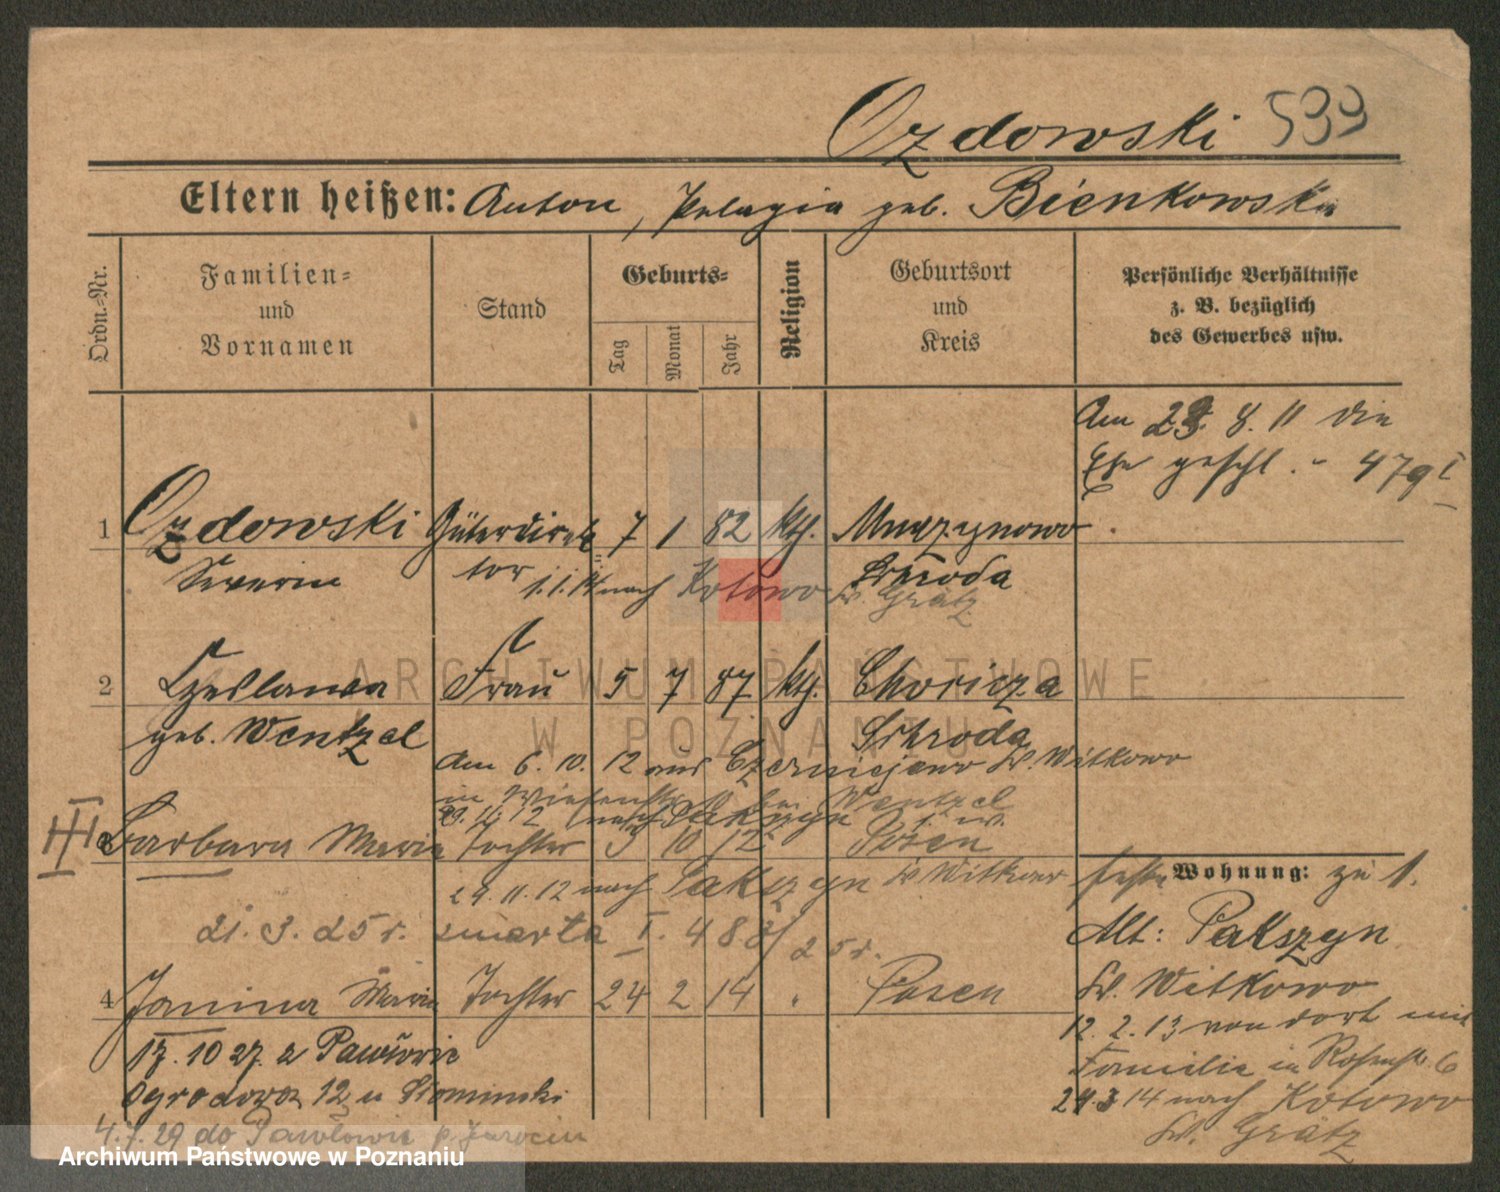 Ozdowski 599
Eltern heißen: Anton, Pelagia geb. Bienkowska
Ordn.-Nr.
Familien-
und
Vornamen
Stand
Geburts-
Tag
Monat
Jahr
Religion
Geburtsort
und
Kreis
Persönliche Verhältnisse
z. B. bezüglich
des Gewerbes usw.
Am 23. 8. 11 die
Ehe geschl. - 479 I
1 Ozdowski Güterdirek 7 1 82 kth. Murzynowo
Severin tor Schroda
1.1.14 nach Kotowo Kr. Grätz
2 Czeslawa Frau 5 7 87 kth. Choricza
geb. Wentzel Schroda
Am 6. 10. 12 aus Czerniejewo Kr. Witkowo
in Wiesenstr. bei Wentzel
29. 11. 12 nach Pakszyn
III Barbara Maria Tochter 3 10 12 Posen
29. 11. 12 nach Pakszyn Kr Witkowo
21. 3. 25 r. zmarła I. 488/25 r.
4 Janina Maria Tochter 24 2 14 " Posen
17. 10 27. z Pawłowic
Ogrodowa 12 u Słominski
4. 7. 29 do Pawłowic p. Jarocin
Wohnung: zu 1.
Alt: Pakszyn
Kr. Witkowo
12. 2. 13 von dort mit
Familie in 6
24. 3 14 nach Kotowo
Kr. Grätz
ARCHIWUM PAŃSTWOWE
W POZNANIU
Archiwum Państwowe w Poznaniu